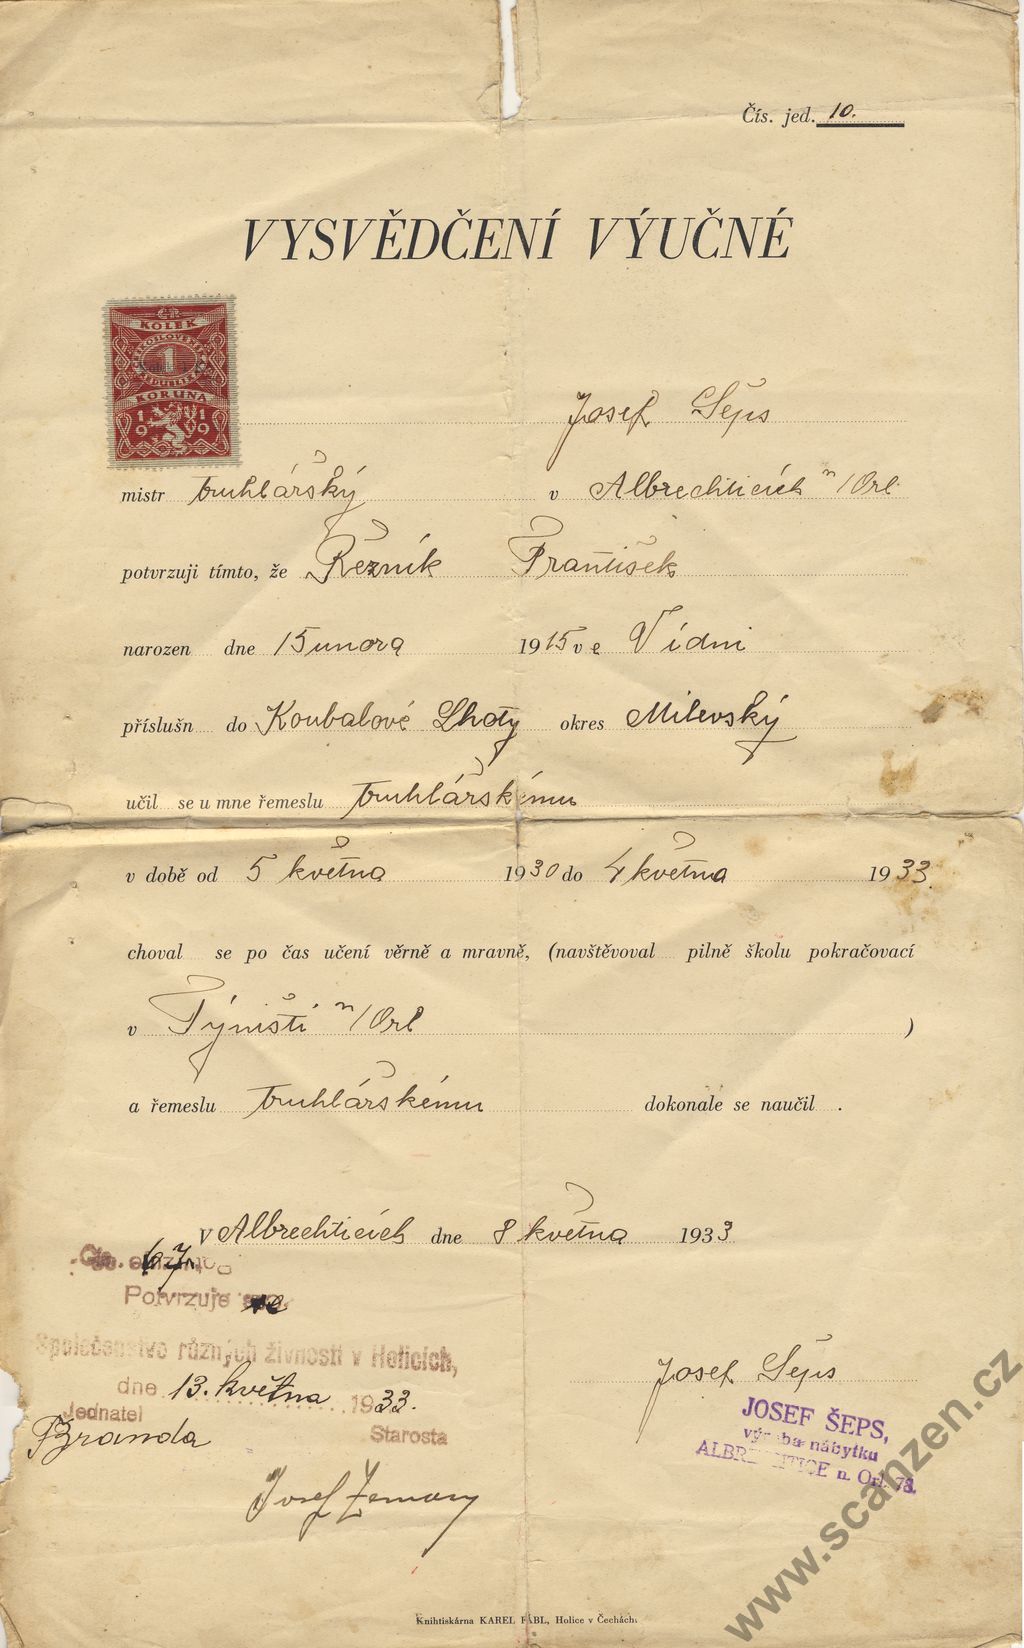 Čís. jed. 10.
VYSVĚDČENÍ VÝUČNÉ
KOLEK
1
KORUNA
1919
Josef Šeps
mistr truhlářský v Albrechticích n/Orl.
potvrzuji tímto, že Řezník František
narozen dne 15 unora 1915 ve Vídni
příslušn do Koubalové Lhoty okres Milevský
učil se u mne řemeslu truhlářskému
v době od 5 května 1930 do 4 května 1933.
choval se po čas učení věrně a mravně, (navštěvoval pilně školu pokračovací
v Týništi n/Orl )
a řemeslu truhlářskému dokonale se naučil .
V Albrechticích dne 8 května 1933
67.
Potvrzuje
Společenstvo různých živností v Holicích,
dne 13. května 1933.
Jednatel
Starosta
Branda
Josef Zeman
Josef Šeps
JOSEF ŠEPS,
výroba nábytku
ALBRECHTICE n. Orl. 78.
Knihtiskárna KAREL FÁBL, Holice v Čechách.
www.scanzen.cz